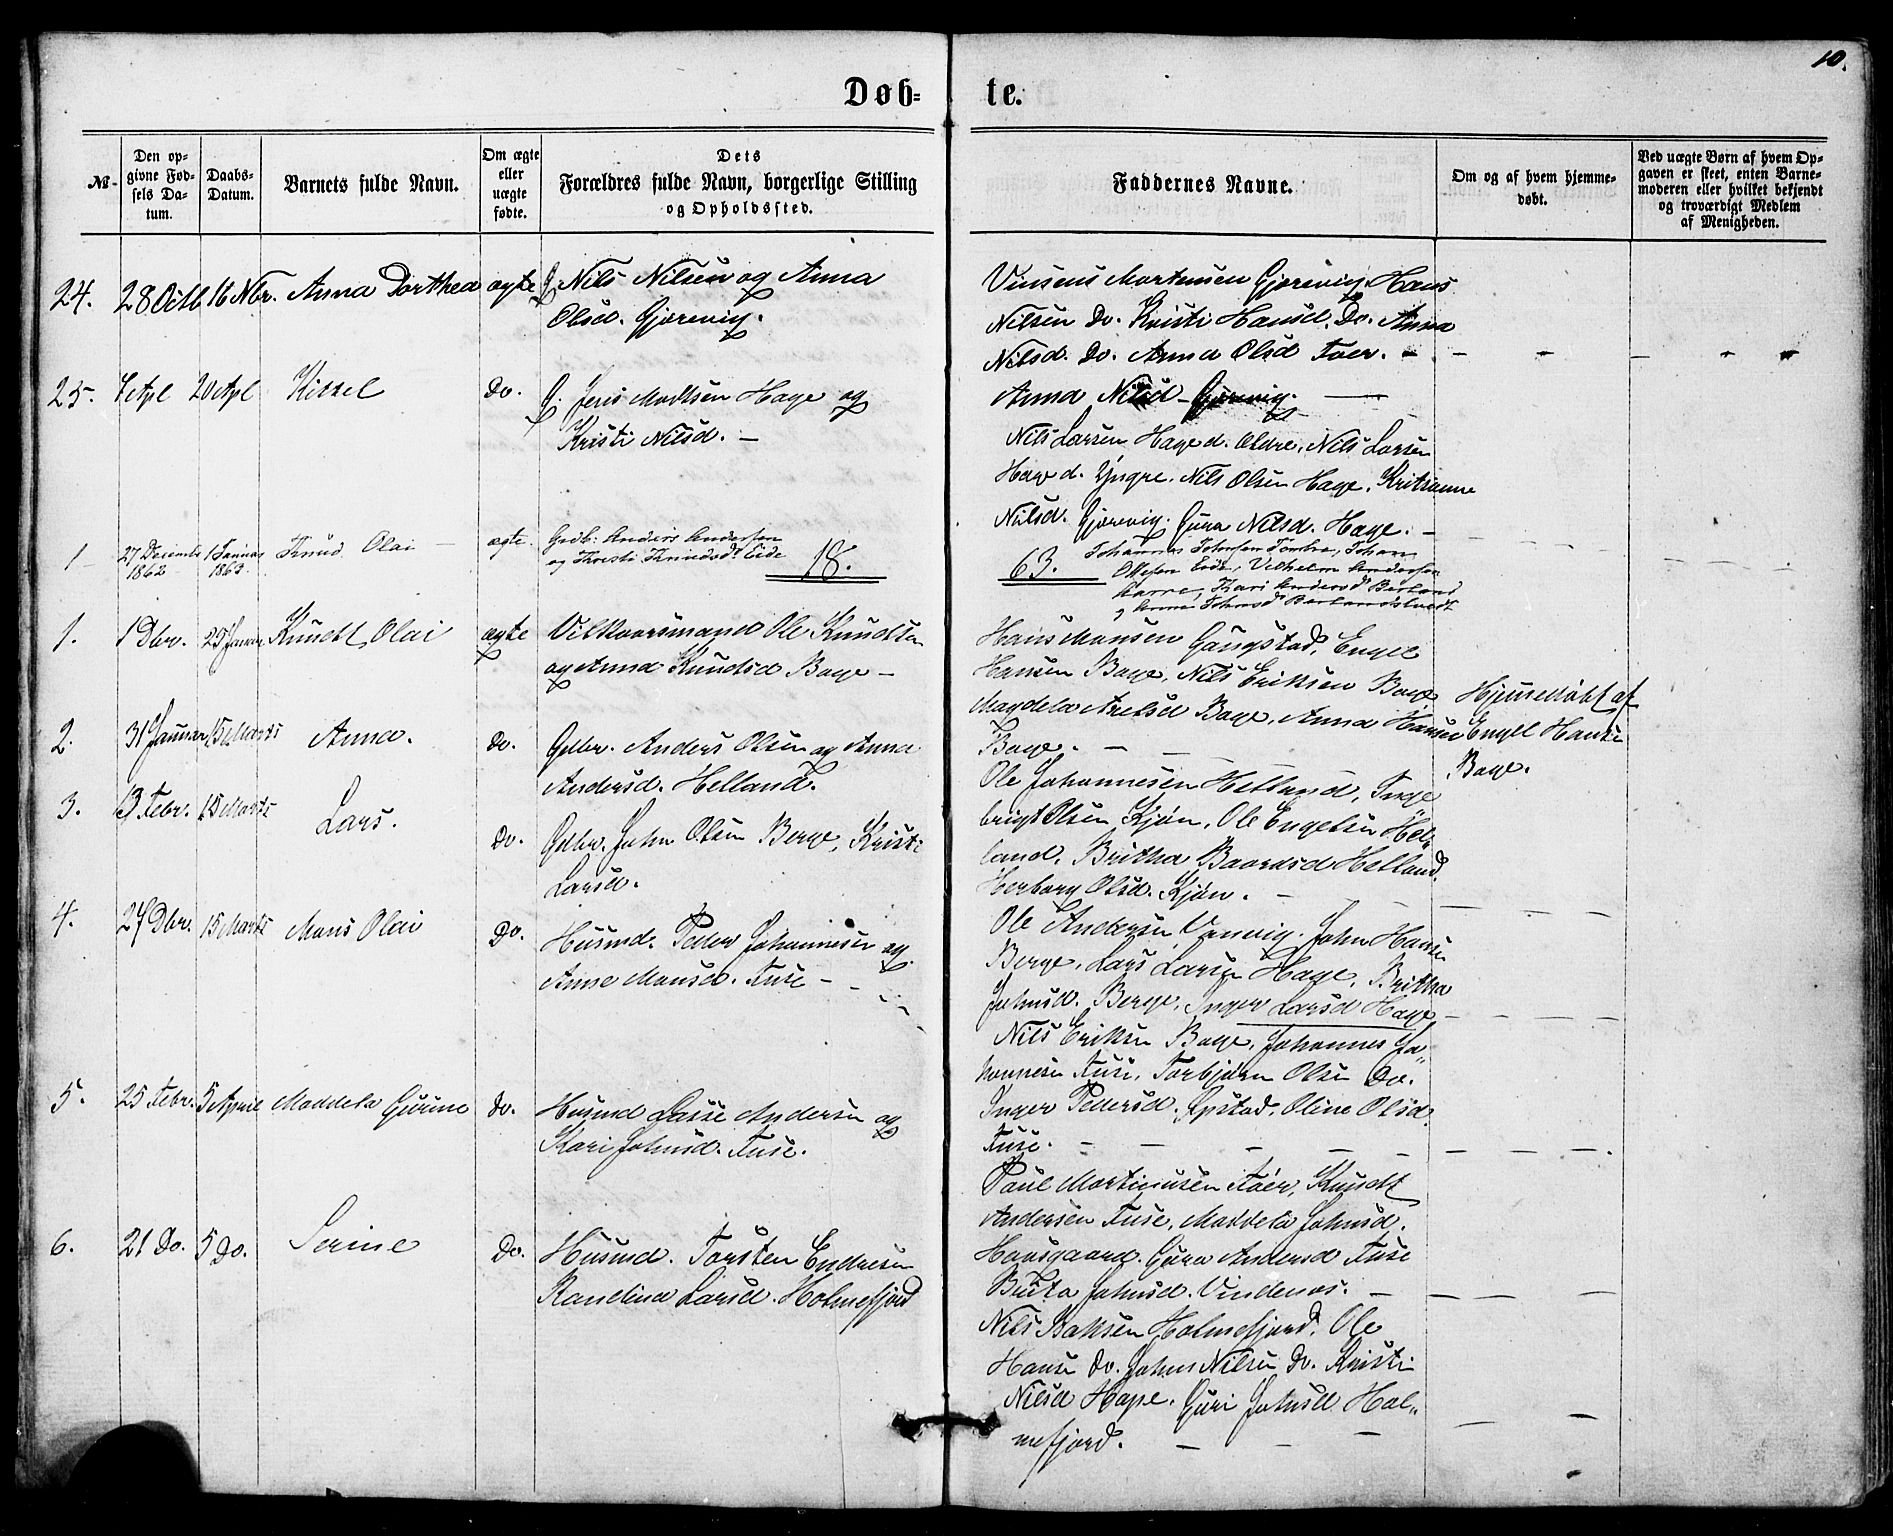 10.
Døb- te.
№
Den opgivne Fødsels Datum.
Daabs-Datum.
Barnets fulde Navn.
Om ægte eller uægte fødte.
Dets Forældres fulde Navn, borgerlige Stilling og Opholdssted.
Faddernes Navne.
Om og af hvem hjemmedøbt.
Ved uægte Børn af hvem Opgaven er skeet, enten Barnemoderen eller hvilket bekjendt og troværdigt Medlem af Menigheden.
24. 28 Octb 16 Nbr. Anna Dorthea ægte G Nils Nilsen og Anna
Olsd. Gjerevig.
Vinsens Mortensen Gjerevig, Hans
Nilsen Do. Kristi Hansd. Do. Anna
Nilsd. Do. Anna Olsd Toer. -
Anna Nilsd - Gjerevig. -
25. 7 Apl 20 Apl Kissel Do. G. Jens Madsen Hage og
Kristi Nilsd. -
Nils Larsen Hage d. Eldre, Nils Larsen
Hage d. Yngre. Nils Olsen Hage.
Nilsd. Gjerevig. Gura Nilsd. Hage. -
1 27 December 1862 1 Januar 1863. Knud Olai - ægte. Grdb: Anders Andersen
og Kirsti Knudsdr Eide
18. 63.
Johannes Johnsen Tombre, Johan
Ottesen Eide, Vilhelm Andersen
Aarre, Kari Andersd Berland
1. 1 Dbr. 25 Januar Knudt Olai ægte Vilkaarsmand Ole Knudsen
og Anna Knudsd Bage -
Hans Monsen Gaugstad, Engel
Hansen Bage, Nils Eriksen Bage
Magdela Axelsd Bage, Anna Hansd
Bage. -
Hjemmedøbt af
Engel Hansen
Bage.
2. 31 Januar 15 Marts Anna. Do. Gdbr. Anders Olsen og Anna
Andersd. Helland.
Ole Johannesen Helland, Inge
brigt Olsen Kjøn, Ole Engelsen Hel
land, Britha Baardsd Helland.
Herborg Olsd. Kjøn. -
3. 13 Febr. 15 Marts Lars. Do. Gdbr. John Olsen Berge, Kristi
Larsd.
Ole Andersen Vinnvig. John Hansen
Berge, Lars Larsen Hage, Britha
Johnsd. Berge, Inger Larsd Hage -
4. 27 Dbr. 15 Marts Mons Olai Do. Husmd. Peder Johannesen og
Anne Monsd. Fuse -
Nils Eriksen Bage, Johannes Jo„
hannesen Fuse, Torbjørn Olsen Do.
Inger Pedersd. Opstad, Oline Olsd.
Fuse. -
5. 25 Febr. 5 April Maddela Gurine Do. Husmd Lasse Andersen og
Kari Johnsd. Fuse.
Paul Martinusen Tøer, Knudt
Andersen Fuse, Maddela Johnsd.
Haavsgaard. Gura Andersd Fuse
Brita Johnsd. Vindenes. -
6. 21 Do. 5 Do. Serine Do. Husmd. Torsten Endresen
Randina Larsd. Holmefjord
Nils Baksen Holmefjord. Ole
Hansen Do. Johan Nilsen Do. Kristi
Nilsd Hage. Guri Johnsd Hol„
mefjord. -